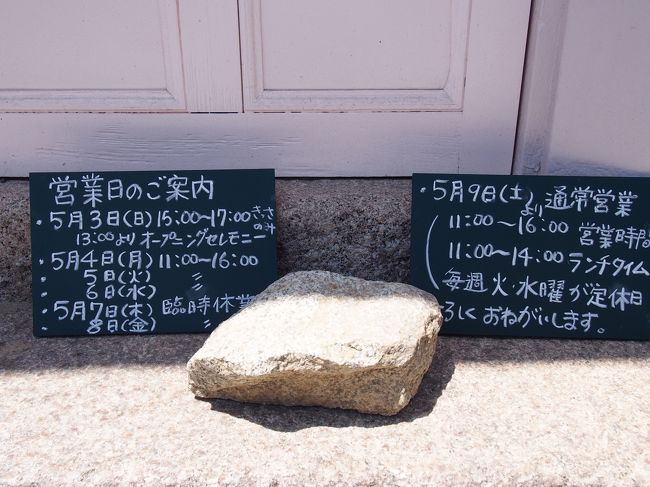 営業日のご案内
・5月3日(日) 15:00〜17:00 きっさのみ
13:00より オープニングセレモニー
・5月4日(月) 11:00〜16:00
・5日(火) 〃
・6日(水)
・5月7日(木) 臨時休業
・8日(金) 〃
・5月9日(土)より通常営業
11:00〜16:00 営業時間
11:00〜14:00 ランチタイム
毎週 火・水曜が定休日
ろしくおねがいします。